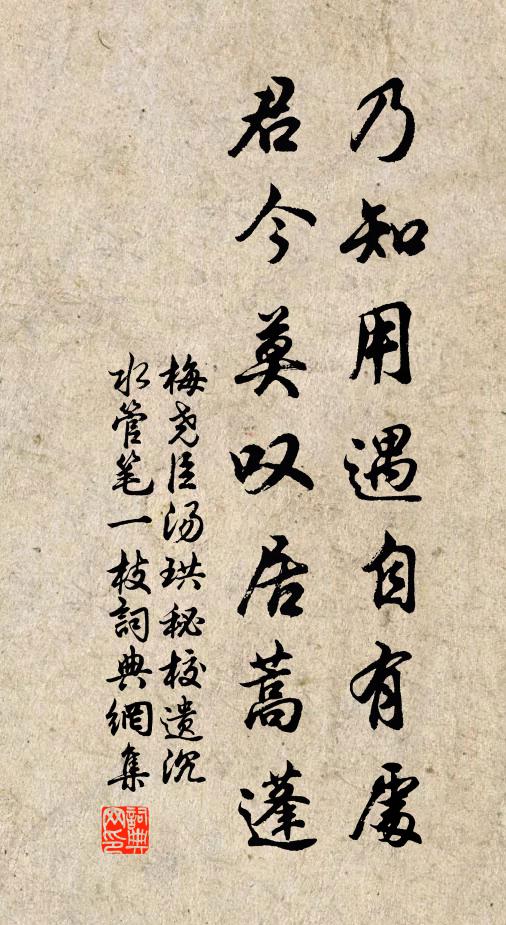 乃知用遇自有處
君今莫叹居蒿蓬
梅尧臣汤珙秘校遗沉
水管笔一枝詞典網集
詞典
网印